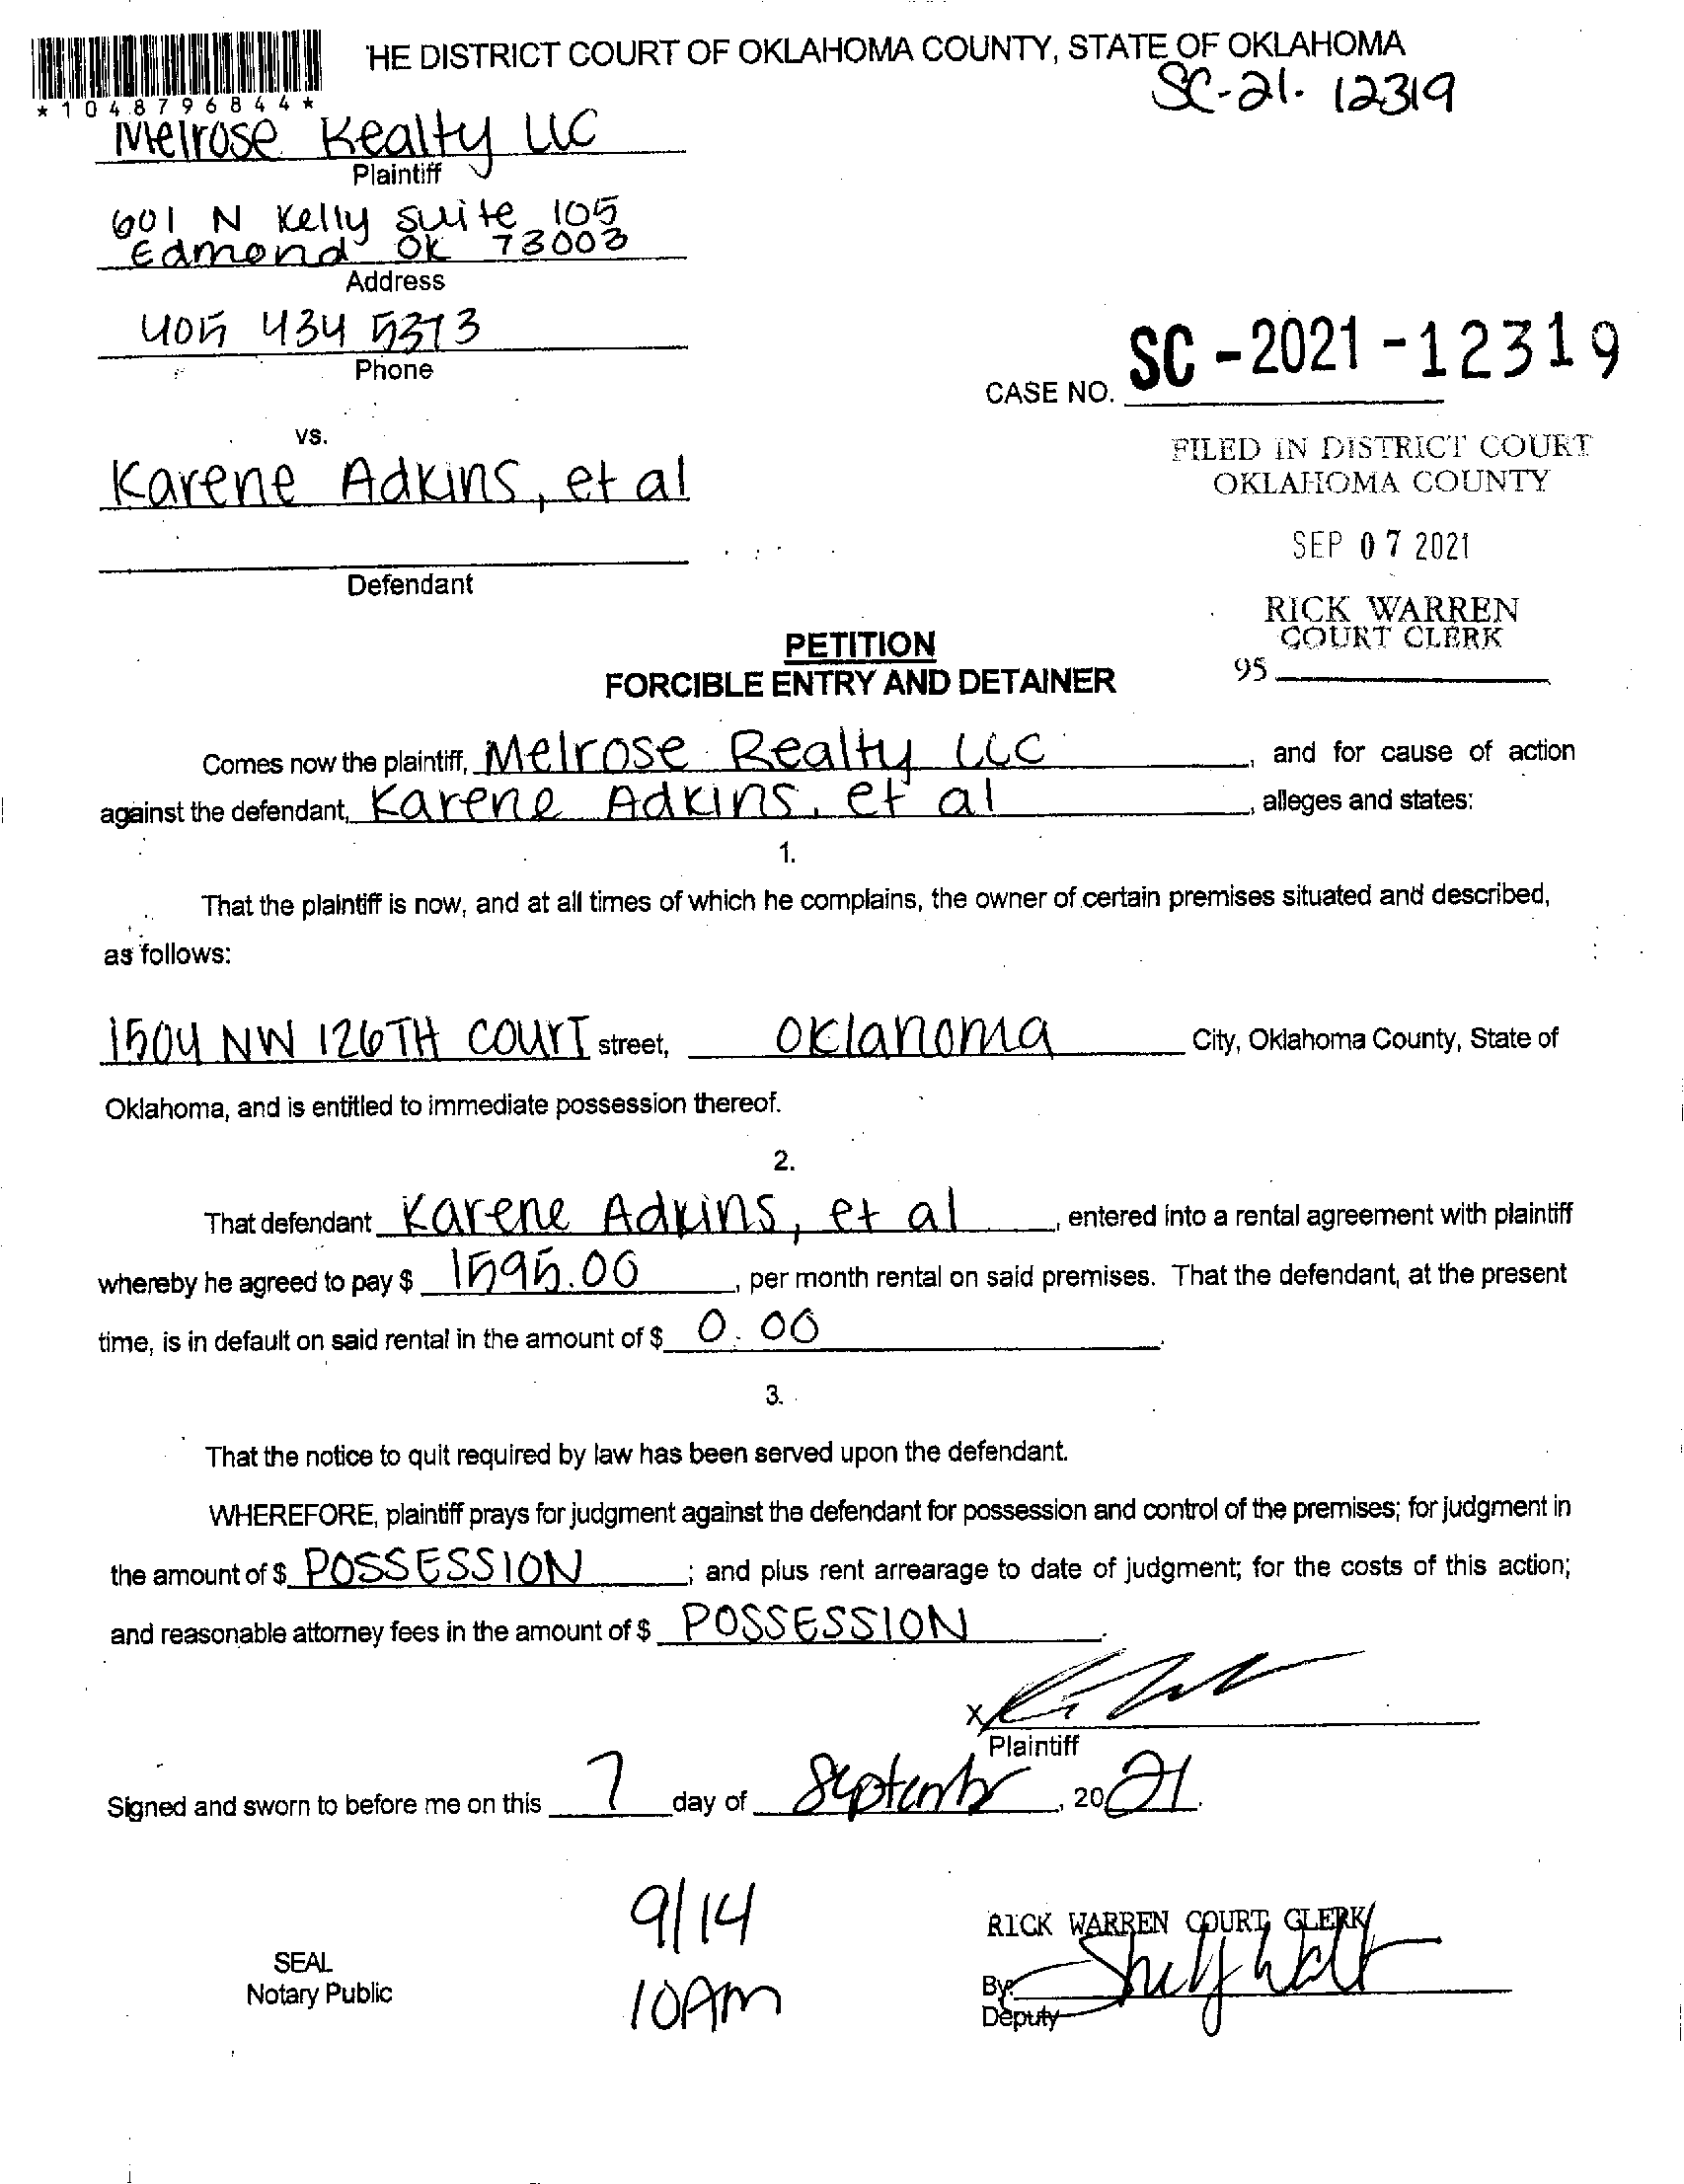 'HE DISTRICT COURT OF OKLAHOMA COUNTY, STATE OF OKLAHOMA
SC-21-12319
*1048796844*
Melrose Realty LLC
Plaintiff
601 N Kelly suite 105
Edmond OK 73003
Address
405 434 5373
Phone
CASE NO. SC-2021-12319
vs.
FILED IN DISTRICT COURT
OKLAHOMA COUNTY
Karene Adkins, et al
SEP 07 2021
Defendant
RICK WARREN
COURT CLERK
95
PETITION
FORCIBLE ENTRY AND DETAINER
Comes now the plaintiff, Melrose Realty LLC, and for cause of action
against the defendant, Karene Adkins, et al, alleges and states:
1.
That the plaintiff is now, and at all times of which he complains, the owner of certain premises situated and described,
as follows:
1504 NW 126TH COURT street, Oklahoma City, Oklahoma County, State of
Oklahoma, and is entitled to immediate possession thereof.
2.
That defendant Karene Adkins, et al, entered into a rental agreement with plaintiff
whereby he agreed to pay $ 1595.00, per month rental on said premises. That the defendant, at the present
time, is in default on said rental in the amount of $ 0.00.
3.
That the notice to quit required by law has been served upon the defendant.
WHEREFORE, plaintiff prays for judgment against the defendant for possession and control of the premises; for judgment in
the amount of $ POSSESSION; and plus rent arrearage to date of judgment; for the costs of this action;
and reasonable attorney fees in the amount of $ POSSESSION.
X
Plaintiff
Signed and sworn to before me on this 7 day of September, 2021.
9/14
10AM
SEAL
Notary Public
RICK WARREN COURT CLERK
By:
Deputy